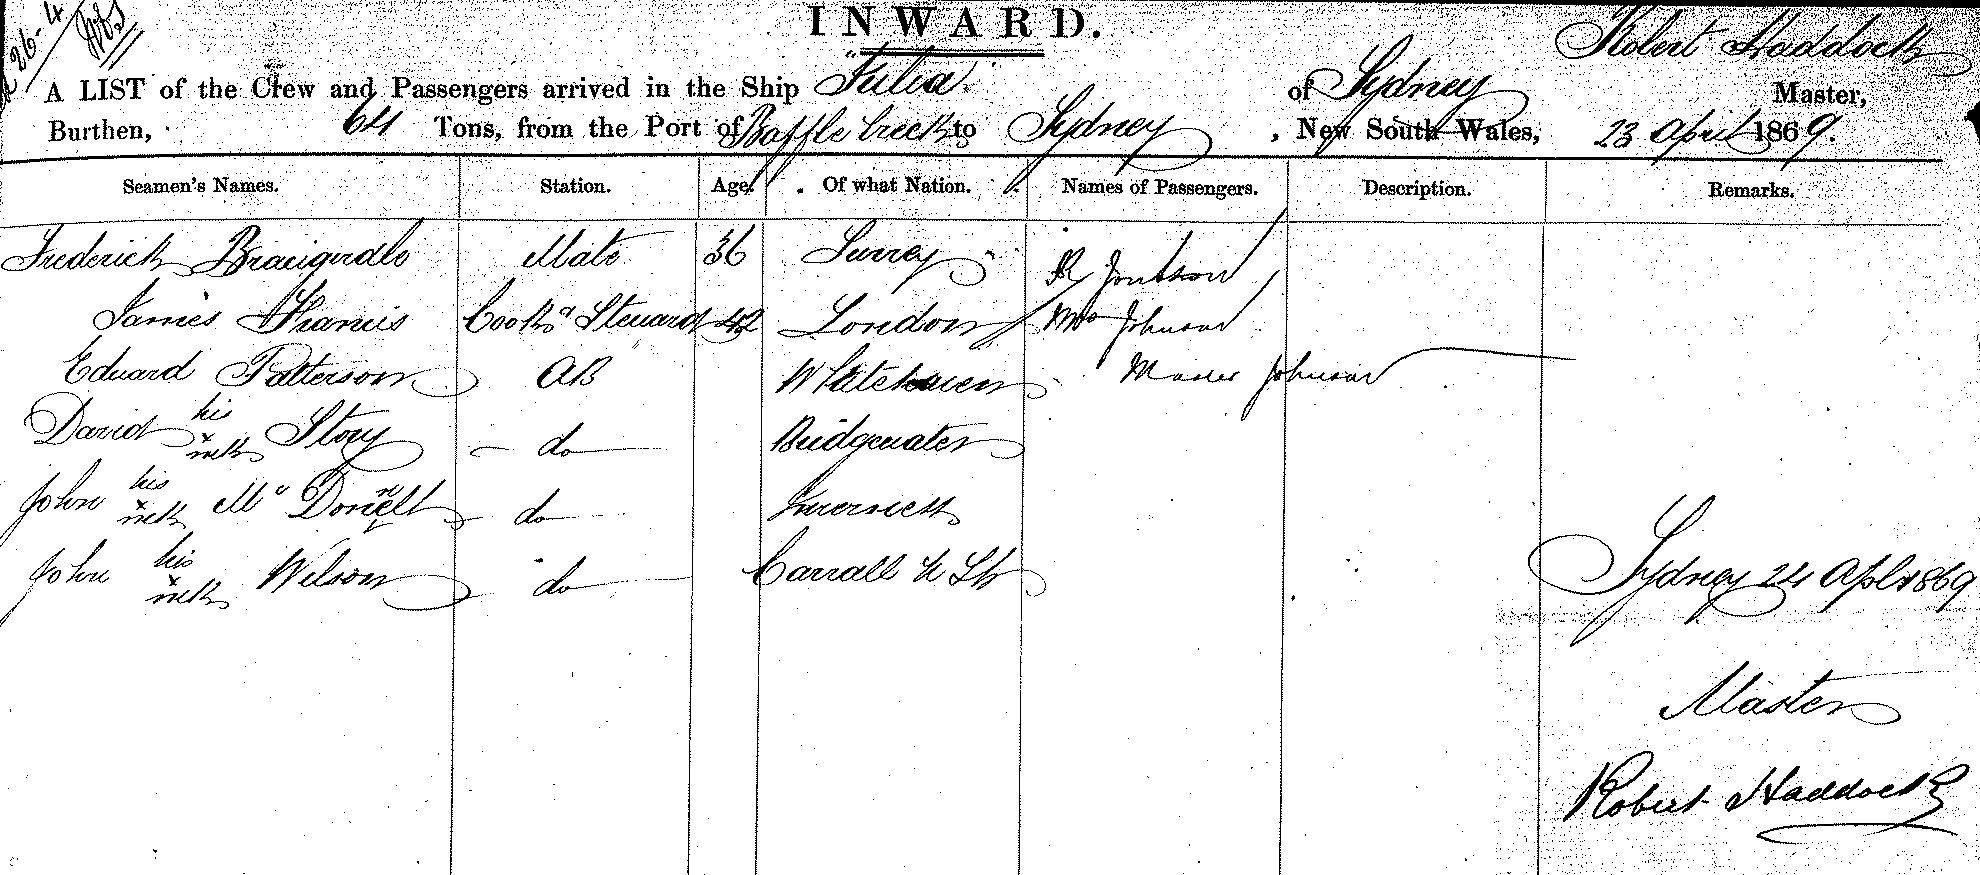 26-4
INWARD.
Robert Haddock
A LIST of the Crew and Passengers arrived in the Ship "Julia" of Sydney Master,
Burthen, 64 Tons, from the Port of Baffle Creek to Sydney, New South Wales, 23 April 1869.
Seamen's Names. Station. Age. Of what Nation. Names of Passengers. Description. Remarks.
Frederick Mate 36 Surrey R
James Cook & Steward 42 London Mrs Johnson
Edward Patterson AB Whitehaven Master Johnson
David his x mk Story do Bridgewater
John his x mk Mc do
John his x mk Wilson do
Sydney 24 Apl 1869
Master
Robert Haddock